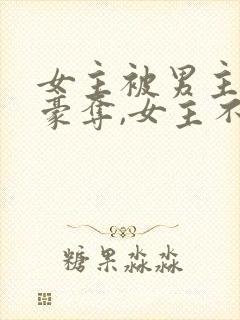 女主被男主
豪夺,女主不
糖果淼淼